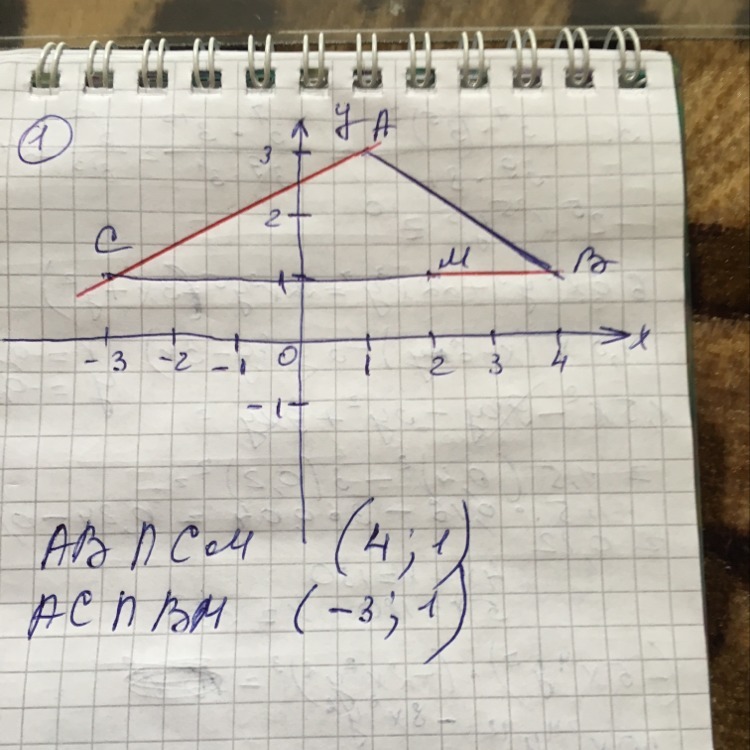 1
y A
3
2
C
M
B
1
-3 -2 -1 0 1 2 3 4 x
-1
AB ∩ CM (4; 1)
AC ∩ BM (-3; 1)